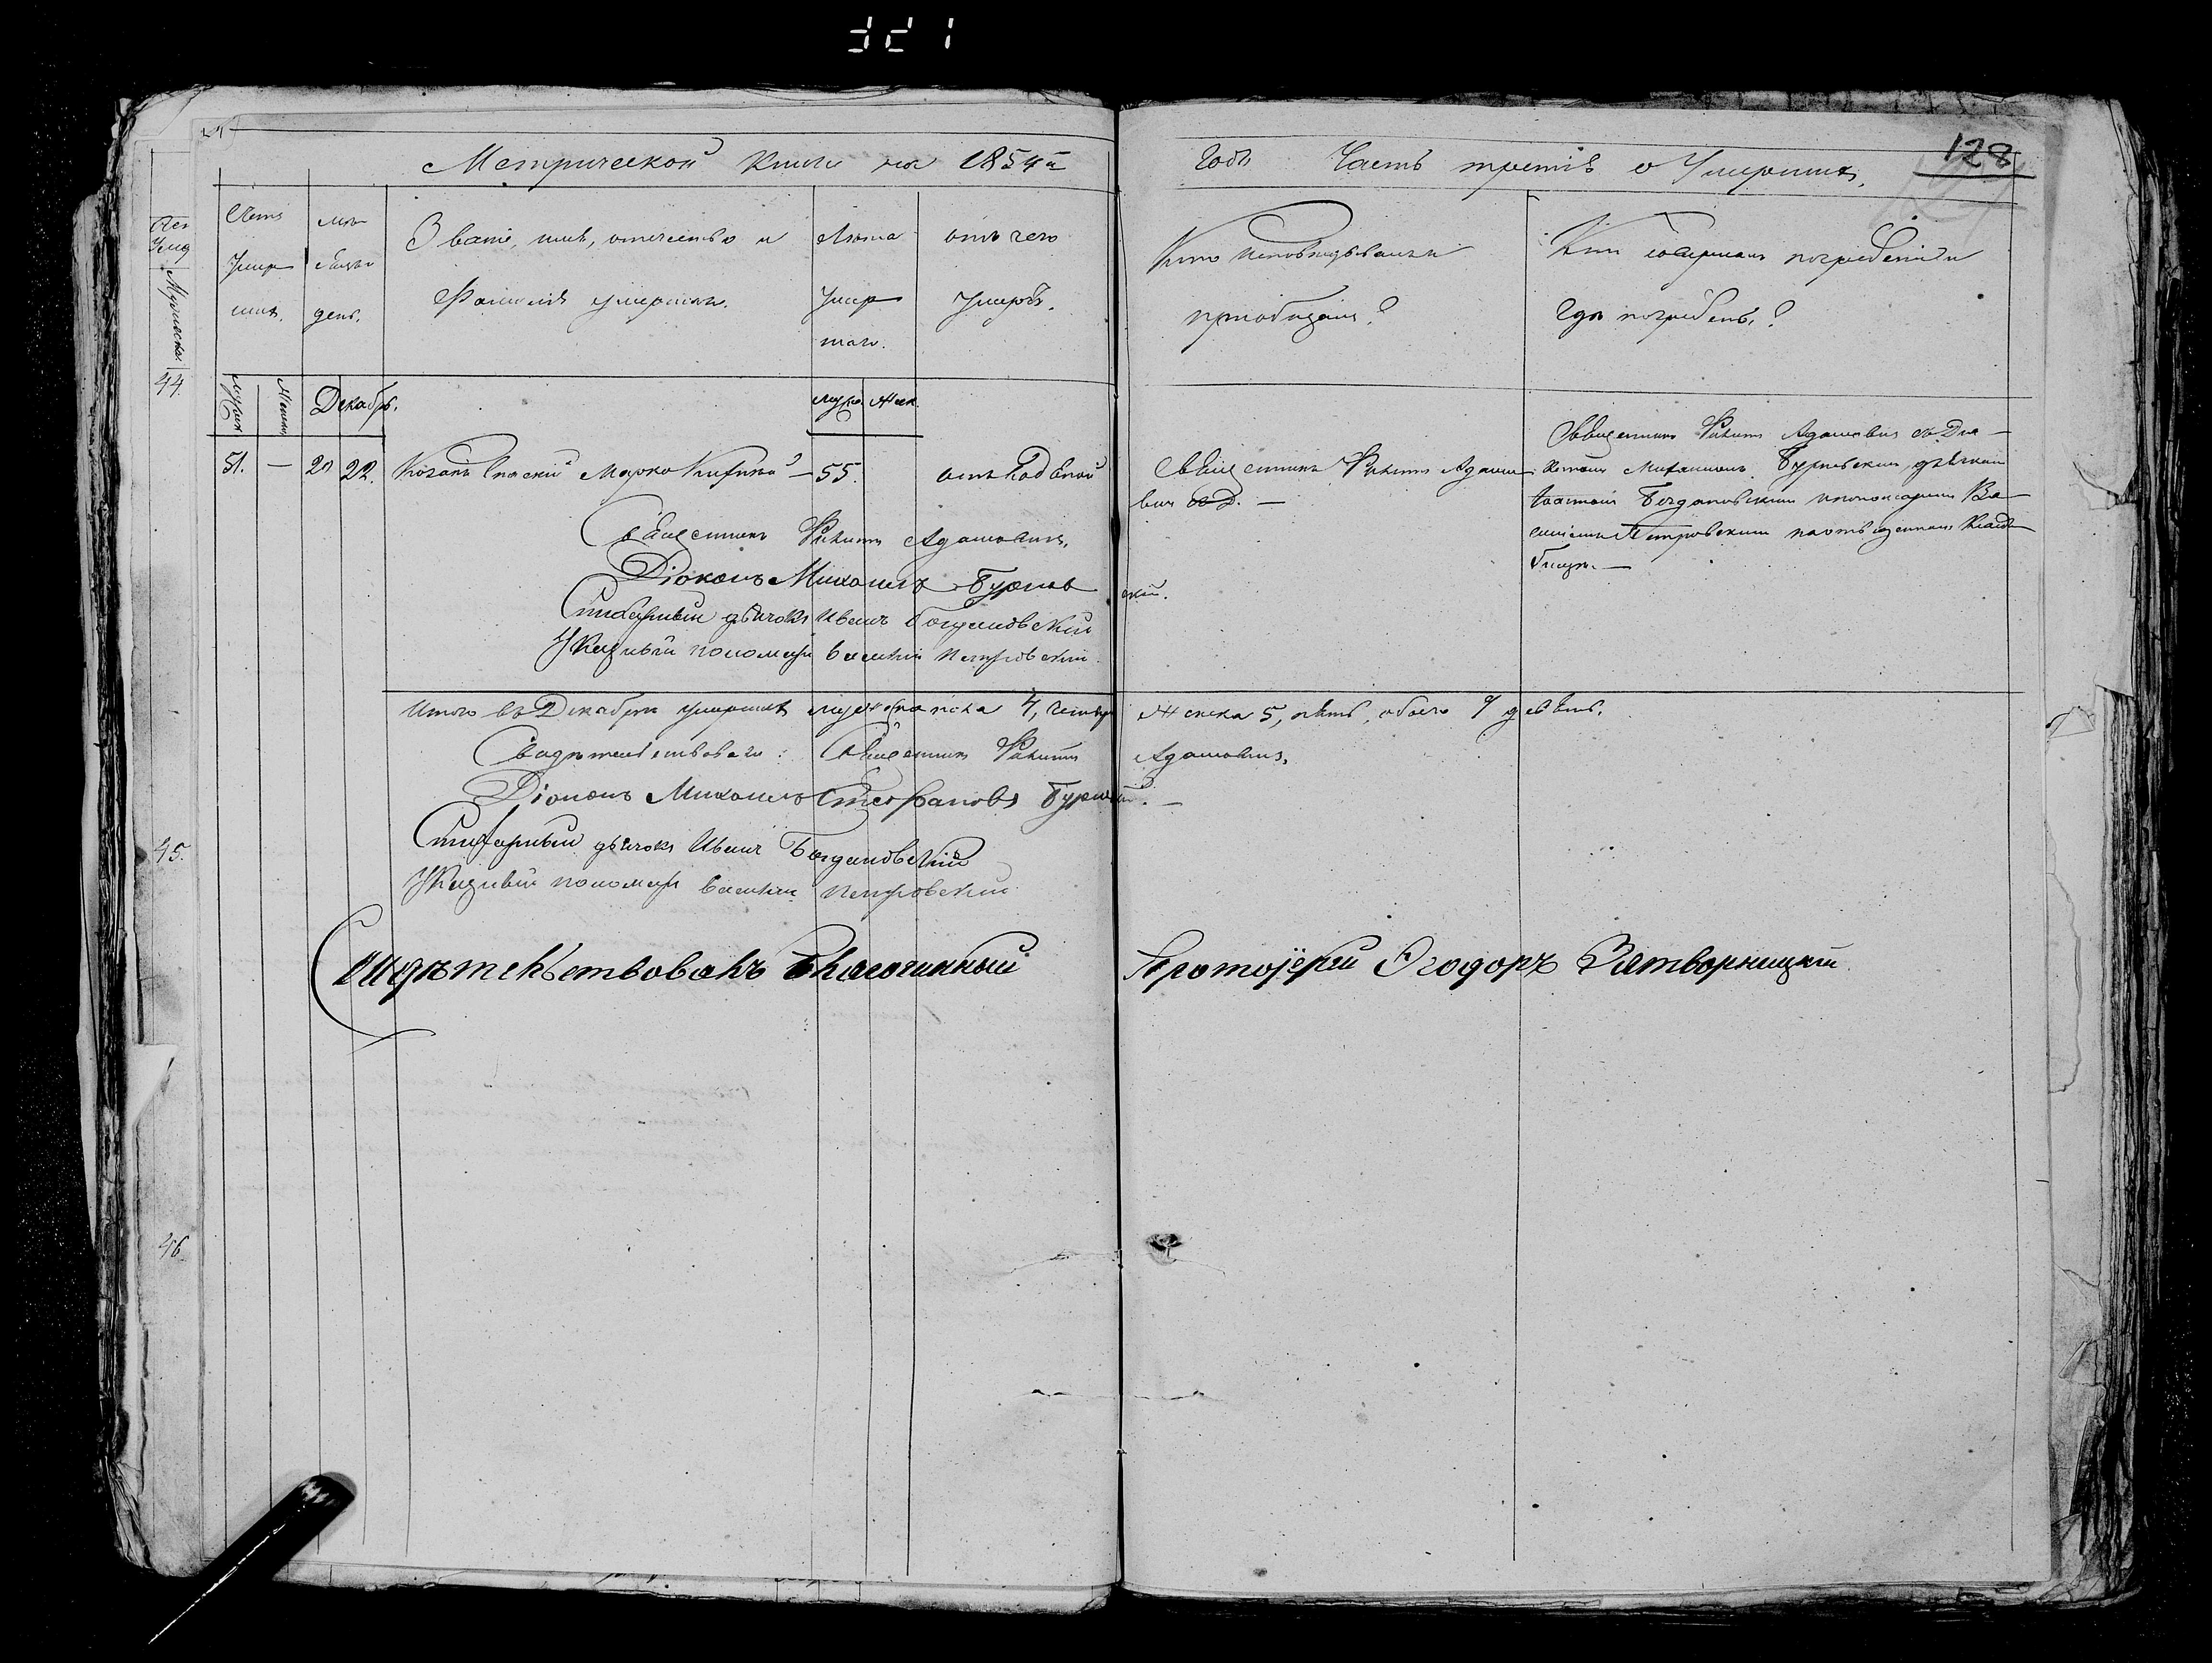 121
Метрической книги на 1854й
годъ Часть третія о Умершихъ.
128
Счетъ умер шихъ.
мѣ сяцъ и день.
Званіе, имя, отчество и
фамилія умершаго.
Лѣта умер шаго.
отъ чего умеръ.
Кто исповѣдывалъ и
пріобщалъ?
Кто совершалъ погребеніе и
гдѣ погребенъ?
44.
Декабрь.
муж. Жен.
51. — 20 22. Козакъ Марко — 55. отъ
Священникъ Адамо
вичь
Священникъ Адамовичь съ Діа
кономъ Михаиломъ дьячкомъ
Богдановскимъ и пономаремъ Ва
силіемъ Петровскимъ на отведенномъ клад
бищѣ. —
Священникъ Адамовичь.
Діаконъ Михаилъ
скій.
Стихарный дьячокъ Иванъ Богдановскій
Указный пономарь Василій Петровскій
Итого въ Декабрѣ умершихъ мужеска пола 4, четыре Женска 5, пять, обоего 9 девять.
Свидѣтельствовали: Священникъ Адамовичь.
Діаконъ Михаилъ Стефановъ
Стихарный дьячокъ Иванъ Богдановскій
Указный пономарь Василій Петровскій
Свидѣтельствовалъ Благочинный Протоіерей Ѳеодоръ Затворницкій
45.
46.